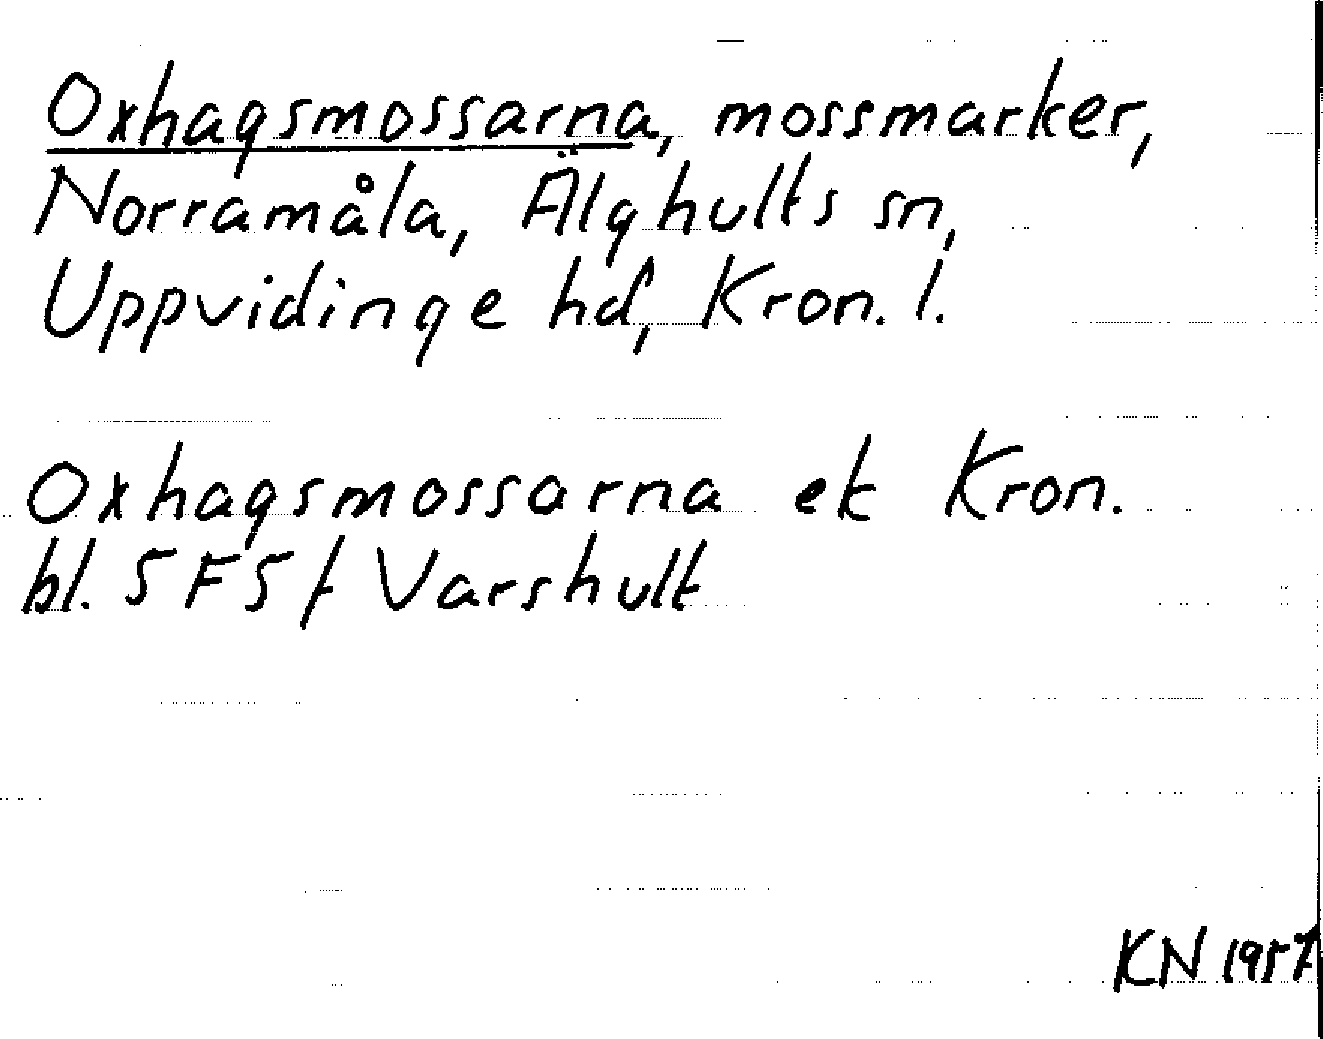 Oxhagsmossarna, mossmarker,
Norramåla, Älghults sn,
Uppvidinge hd, Kron. l.
Oxhagsmossarna ek Kron.
bl. 5F5f Varshult
KN 1957